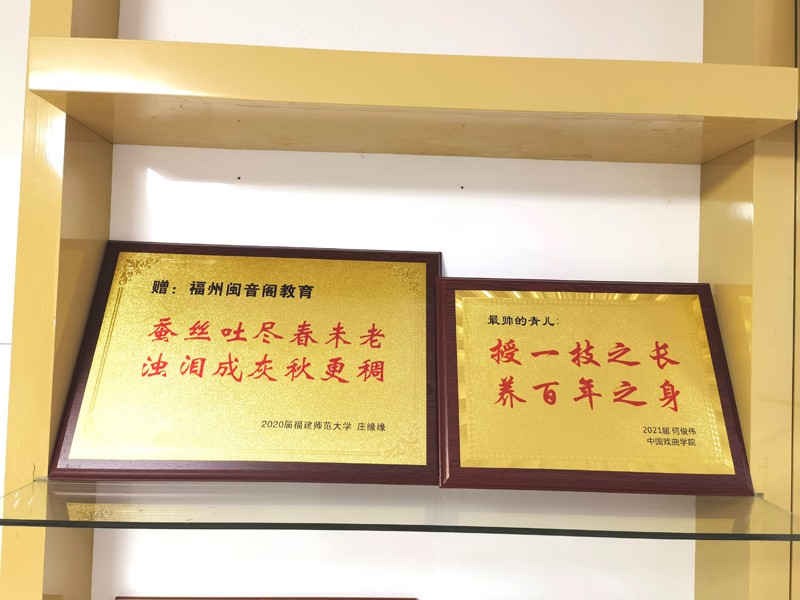 赠：福州闽音阁教育
蚕丝吐尽春未老
浊泪成灰秋更稠
2020届福建师范大学 庄缘缘
最帅的青儿：
授一技之长
养百年之身
2021届 何俊伟
中国戏曲学院